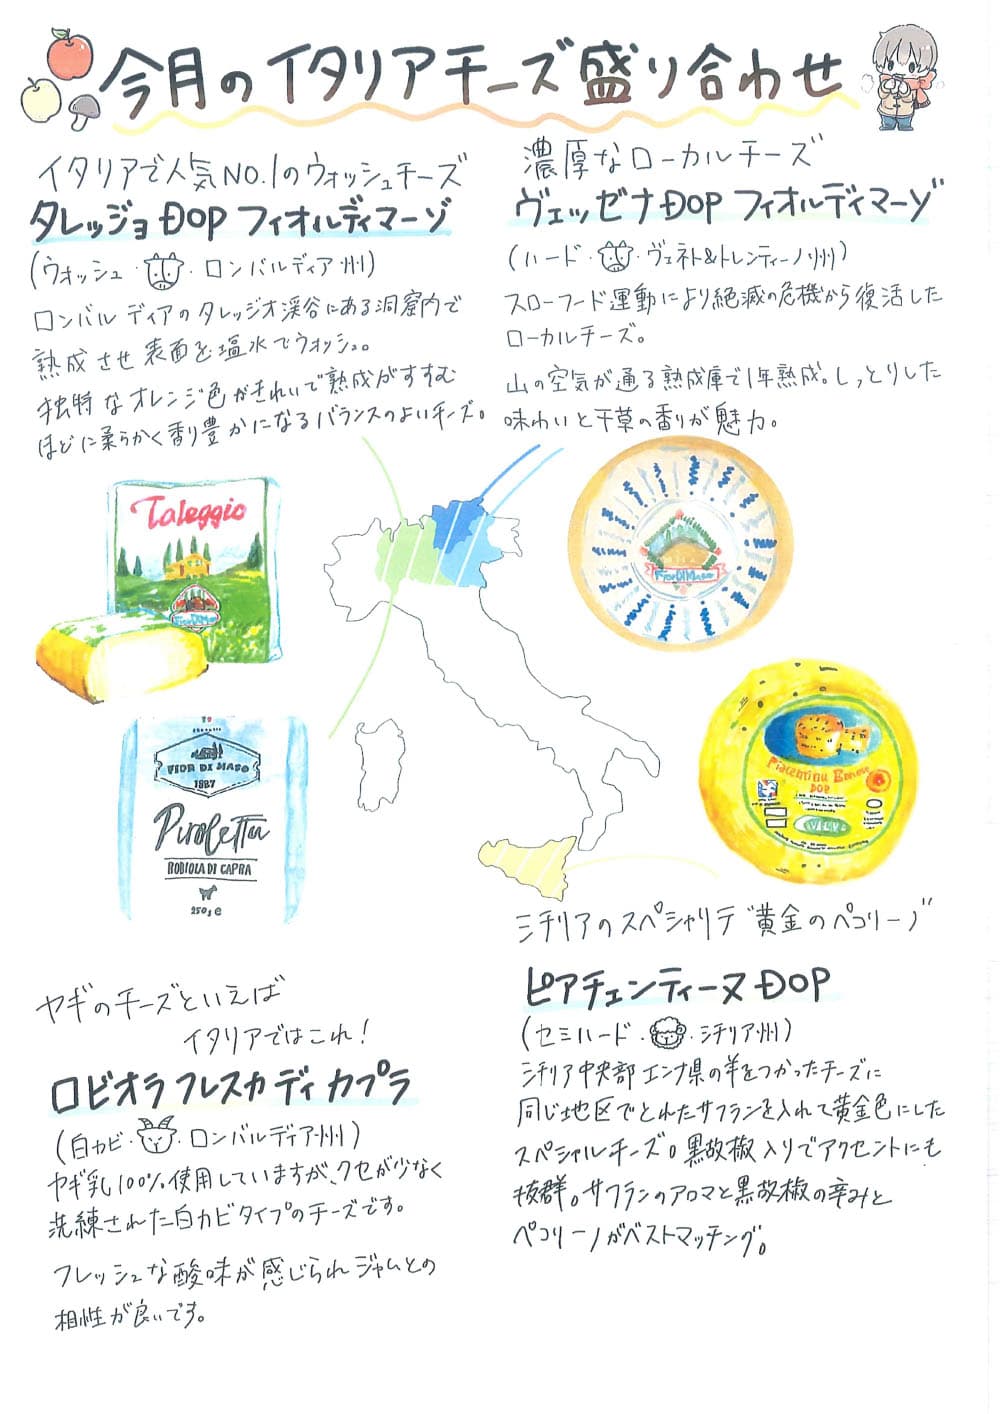 今月のイタリアチーズ盛り合わせ
イタリアで人気NO.1のウォッシュチーズ
タレッジョ DOP フィオルディマーゾ
(ウォッシュ・・ロンバルディア州)
ロンバルディアのタレッジオ渓谷にある洞窟内で
熟成させ表面を塩水でウォッシュ。
独特なオレンジ色がきれいで熟成がすすむ
ほどに柔らかく香り豊かになるバランスのよいチーズ。
濃厚なローカルチーズ
ヴェッゼナ DOP フィオルディマーゾ
(ハード・・ヴェネト&トレンティーノ州)
スローフード運動により絶滅の危機から復活した
ローカルチーズ。
山の空気が通る熟成庫で1年熟成。しっとりした
味わいと干草の香りが魅力。
Taleggio
FIOR DI MASO
1887
Piroletta
ROBIOLA DI CAPRA
250g e
FIOR DI MASO
Piacentinu Ennese
DOP
ヤギのチーズといえば
イタリアではこれ!
ロビオラ フレスカ ディ カプラ
(白カビ・・ロンバルディア州)
ヤギ乳100%使用していますが、クセが少なく
洗練された白カビタイプのチーズです。
フレッシュな酸味が感じられジャムとの
相性が良いです。
シチリアのスペシャリテ"黄金のペコリーノ"
ピアチェンティーヌ DOP
(セミハード・・シチリア州)
シチリア中央部エンナ県の羊をつかったチーズに
同じ地区でとれたサフランを入れて黄金色にした
スペシャルチーズ。黒故椒入りでアクセントにも
抜群。サフランのアロマと黒故椒の辛みと
ペコリーノがベストマッチング。